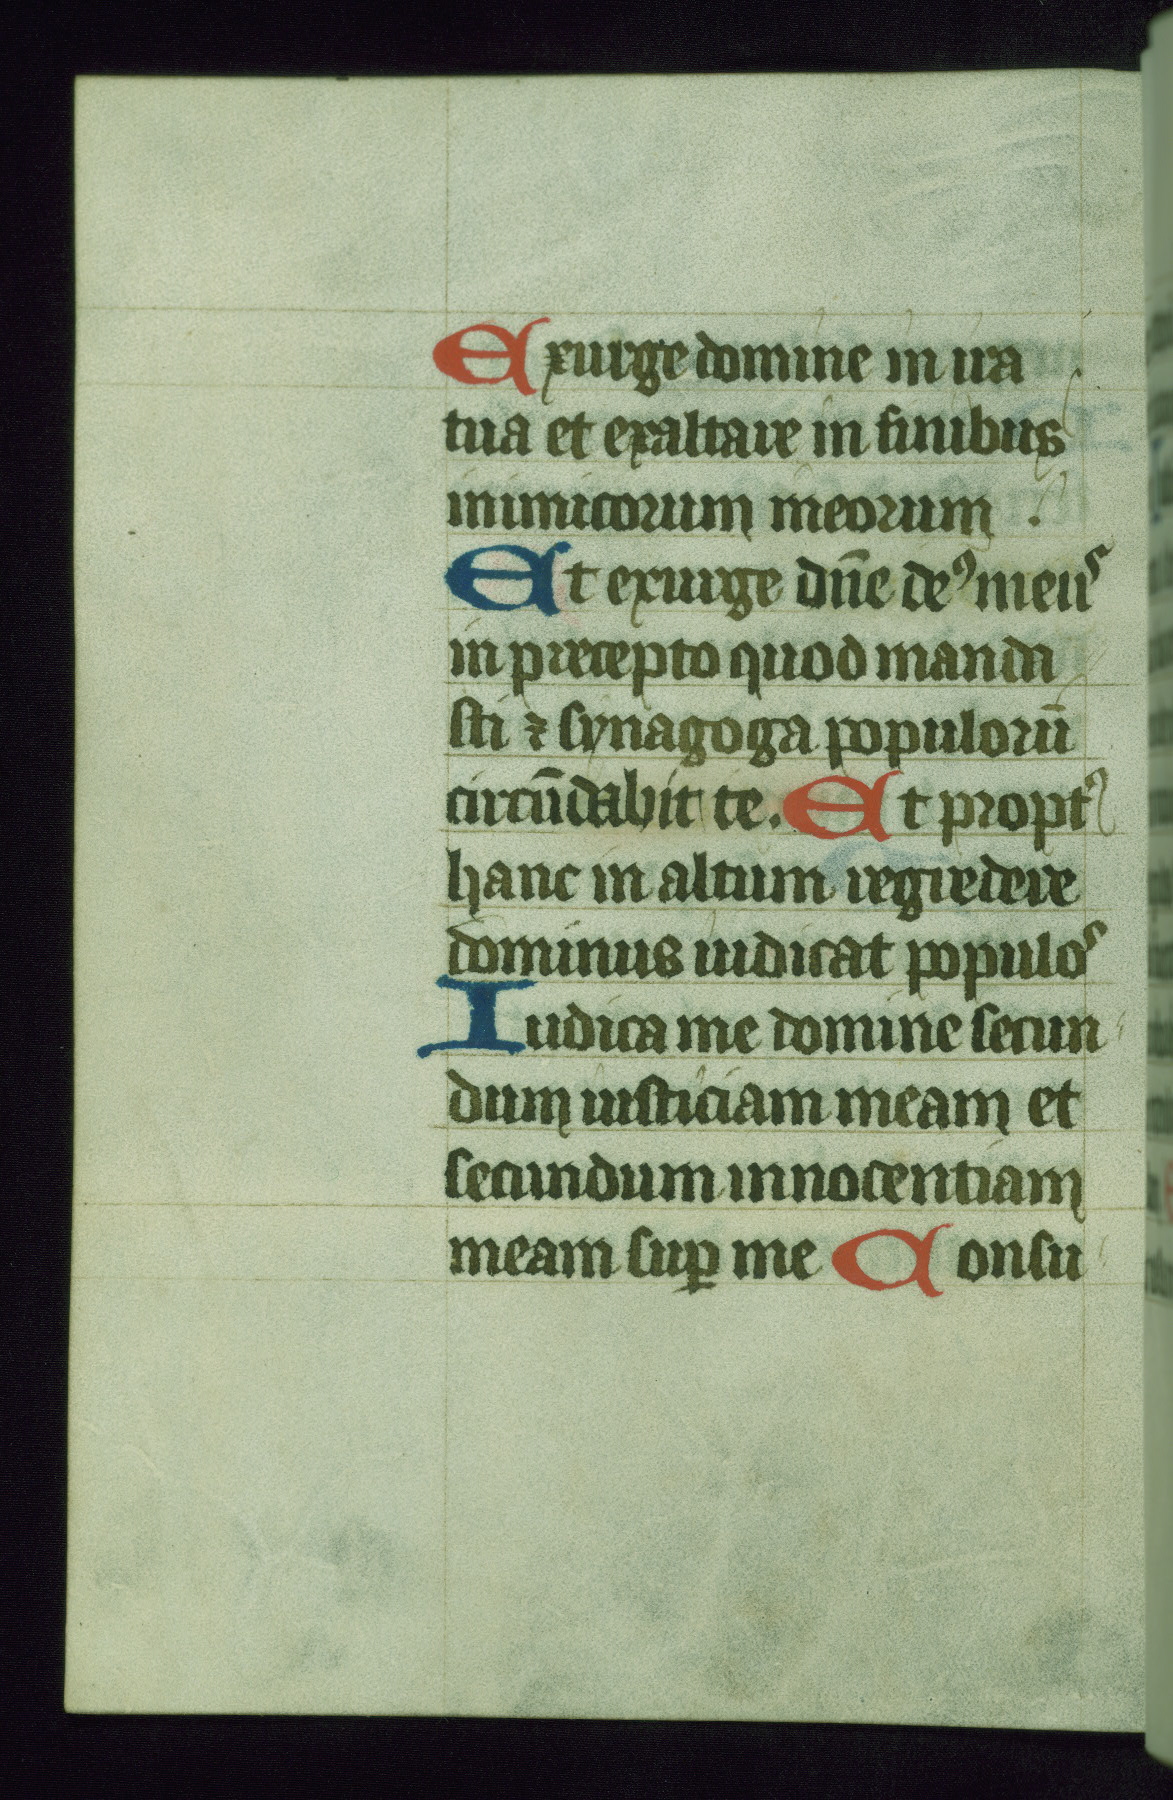 Exurge domine in ira
tua et exaltare in finibus
inimicorum meorum .
Et exurge dn̄e deꝰ meus
in precepto quod manda
sti ⁊ synagoga populorū
circūdabit te. Et propt᾽
hanc in altum regredere
dominus iudicat populos
Iudica me domine secun
dum iusticiam meam et
secundum innocentiam
meam suꝑ me Consu